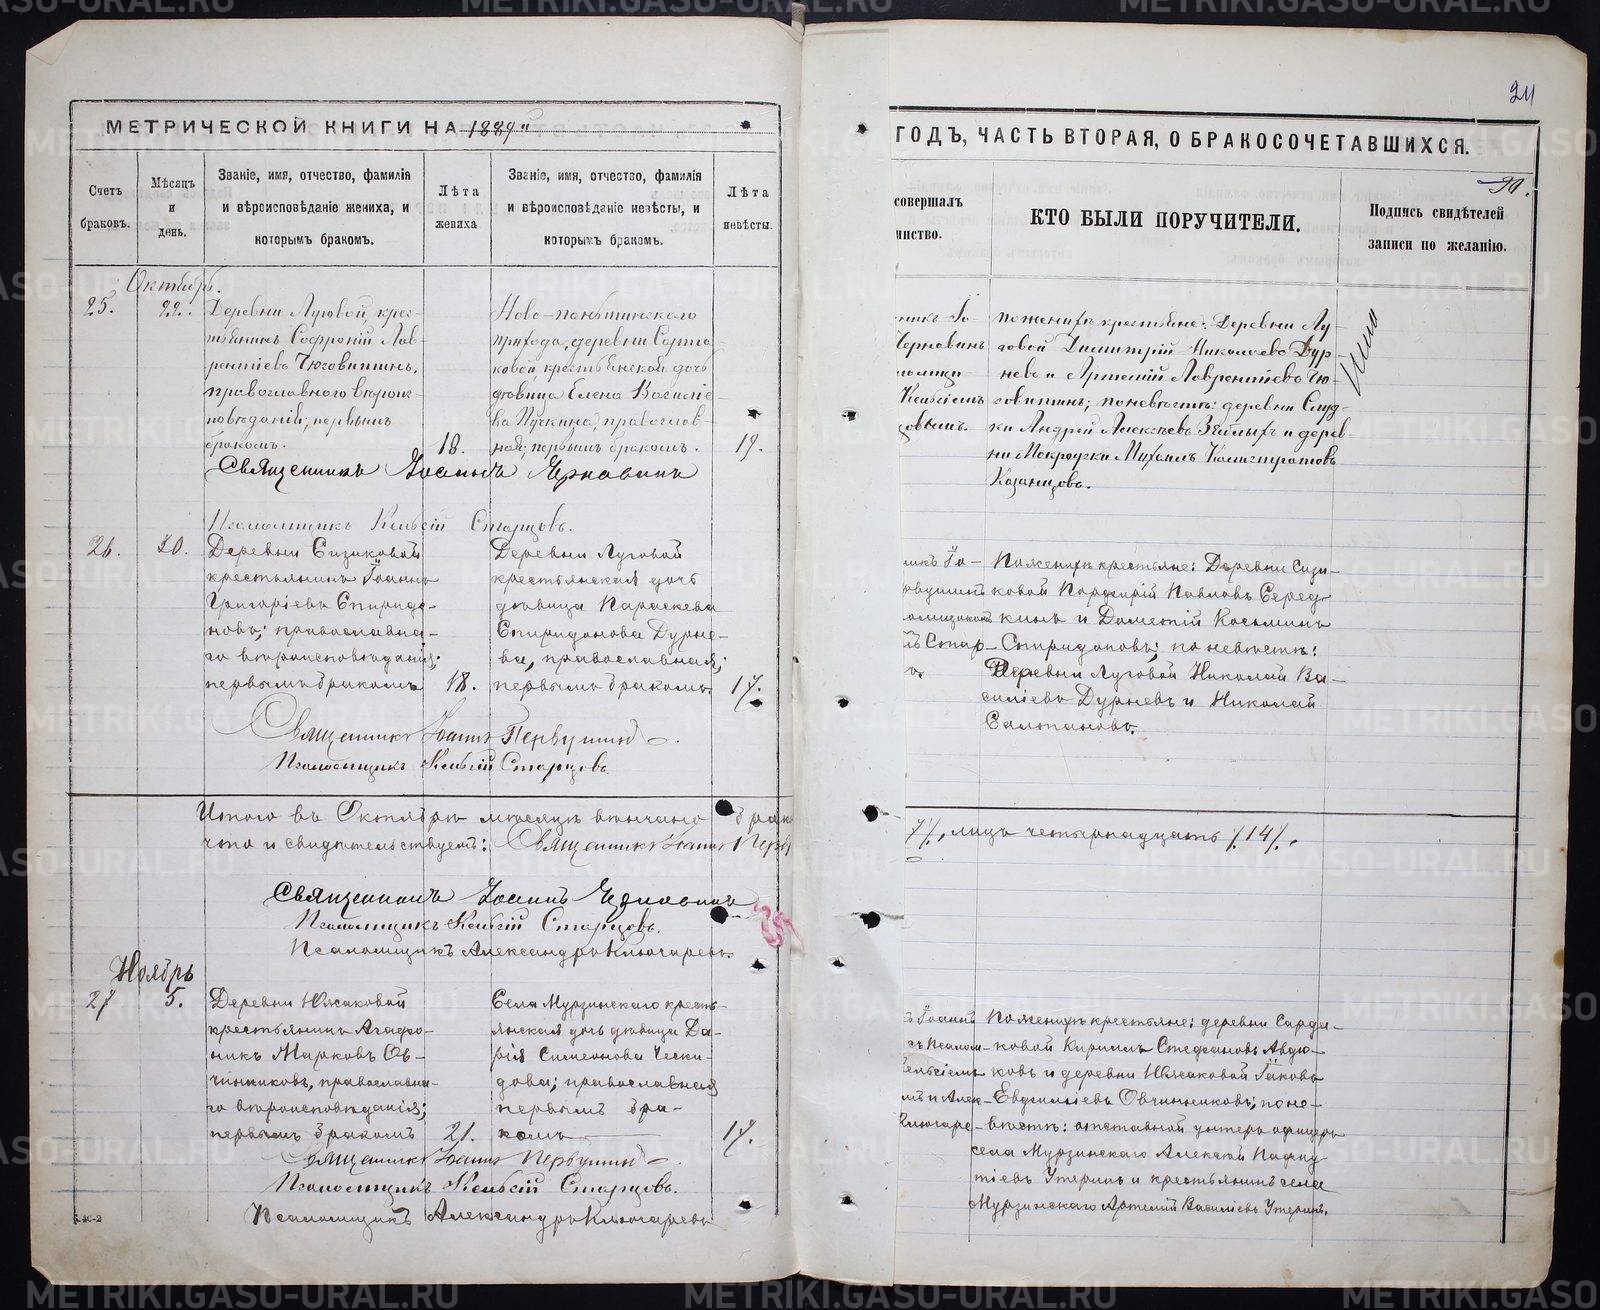 МЕТРИЧЕСКОЙ КНИГИ НА 1889й
Счетъ браковъ.
Мѣсяцъ и день.
Званіе, имя, отчество, фамилія и вѣроисповѣданіе жениха, и которымъ бракомъ.
Лѣта жениха
Званіе, имя, отчество, фамилія и вѣроисповѣданіе невѣсты, и которымъ бракомъ.
Лѣта невѣсты.
Октябрь.
25.
22.
Деревни Луговой, крес-
тьянинъ Софроній Лав-
рентіевъ Чюговитинъ,
православнаго вѣроис-
повѣданія, первымъ
бракомъ.
18.
прихода, деревни
ковой, крестьянской дочь
дѣвица Елена Василіе-
ва Пучкина, православ-
ная, первымъ бракомъ.
19.
Священникъ Іоаннъ Чернавинъ
Псаломщикъ Кельсій Старцовъ.
26.
30.
Деревни Сизиковой
крестьянинъ Іоаннъ
Григоріевъ Спиридо-
новъ; православна-
го вѣроисповѣданія;
первымъ бракомъ
18.
Деревни Луговой
крестьянская дочь
дѣвица Параскева
Спиридонова Дурне-
ва, православная;
первымъ бракомъ.
17.
Священникъ Іоаннъ Первушинъ.
Псаломщикъ Кельсій Старцовъ.
Итого въ Октябрѣ мѣсяцѣ вѣнчано
что и свидѣтельствуемъ: Священникъ Іоаннъ
Священникъ Іоаннъ Чернавинъ
Псаломщикъ Кельсій Старцовъ.
Псаломщикъ Александръ Ключаревъ.
Ноябрь
27
5.
Деревни
крестьянинъ Агафо-
никъ Марковъ Ов-
чинниковъ, православна-
го вѣроисповѣданія;
первымъ бракомъ
21.
Села Мурзинскаго кресть-
янская дочь дѣвица Да-
рія Симеонова Чески-
дова; православная
первымъ бра-
комъ
17.
Священникъ Іоаннъ Первушинъ.
Псаломщикъ Кельсій Старцовъ.
Псаломщикъ Александръ Ключаревъ
ГОДЪ, ЧАСТЬ ВТОРАЯ, О БРАКОСОЧЕТАВШИХСЯ.
совершалъ
инство.
КТО БЫЛИ ПОРУЧИТЕЛИ.
Подпись свидѣтелей записи по желанію.
по женихѣ крестьяне: Деревни Лу-
говой Димитрій Николаевъ Дур-
невъ и Артемій Лаврентіевъ Чю-
говитинъ; по невѣстѣ: деревни Слуд-
ки Андрей Алексѣевъ и дерев-
ни Макродки Михаилъ Калистратовъ
Казанцовъ.
По женихѣ крестьяне: Деревни Сизи-
ковой Порфирій Павловъ Серед-
кинъ и Дометій Косьминъ
Спиридоновъ; по невѣстѣ:
Деревни Луговой Николай Ва-
силіевъ Дурневъ и Николай
Салтановъ.
7/., лицъ четырнадцать /.14/.
По женихѣ крестьяне: деревни Сарда-
ковой Кирилъ Стефановъ Авдю-
ковъ и деревни Іаковъ
Евгеніевъ Овчинниковъ; по не-
вѣстѣ: отставной унтеръ офицеръ
села Мурзинскаго Алексѣй Пафну-
тіевъ Утеринъ и крестьянинъ села
Мурзинскаго Артемій Василіевъ Утеринъ.
METRIKI.GASO-URAL.RU